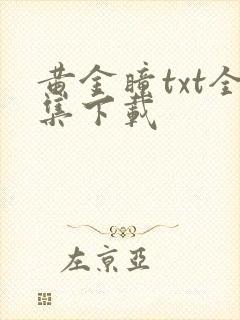 黄金瞳txt全
集下载
左京亞